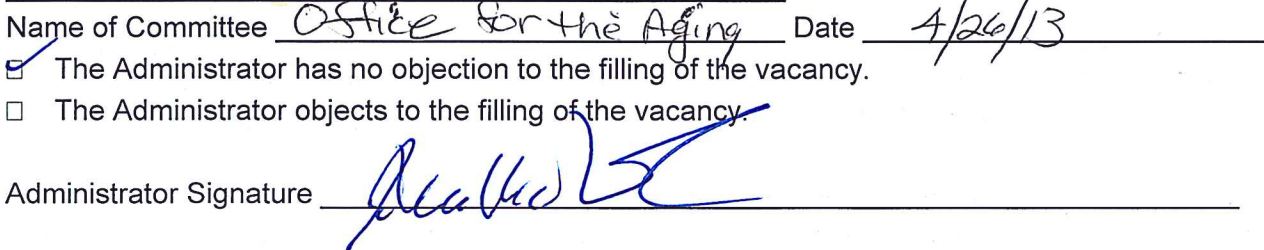 Name of Committee Office for the Aging Date 4/26/13
☑ The Administrator has no objection to the filling of the vacancy.
☐ The Administrator objects to the filling of the vacancy.
Administrator Signature